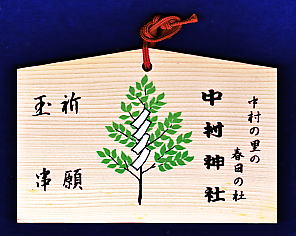 中村の里の
春日の杜
中村神社
祈願
玉串